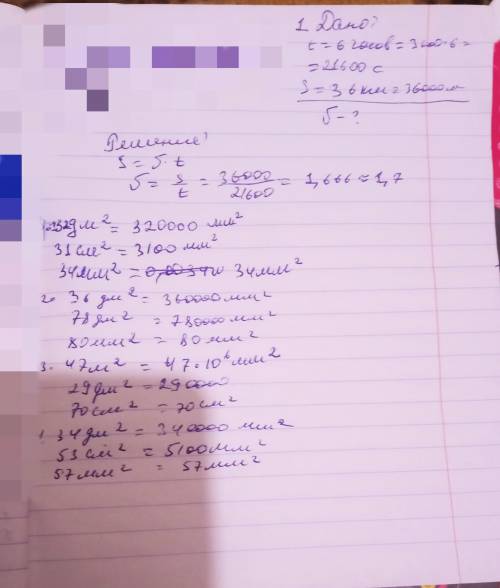 1. Дано:
t = 6 часов = 3600·6 =
= 21600 с
S = 36 км = 36000 м
V - ?
Решение:
S = V · t
V = S/t = 36000/21600 = 1,666 ≈ 1,7
32 дм² = 320000 мм²
31 см² = 3100 мм²
34 мм² = 34 мм²
2. 36 дм² = 360000 мм²
78 дм² = 780000 мм²
80 мм² = 80 мм²
3. 47 м² = 47·10⁶ мм²
29 дм² = 290000
70 см² = 70 см²
34 дм² = 340000 мм²
53 см² = 5100 мм²
57 мм² = 57 мм²